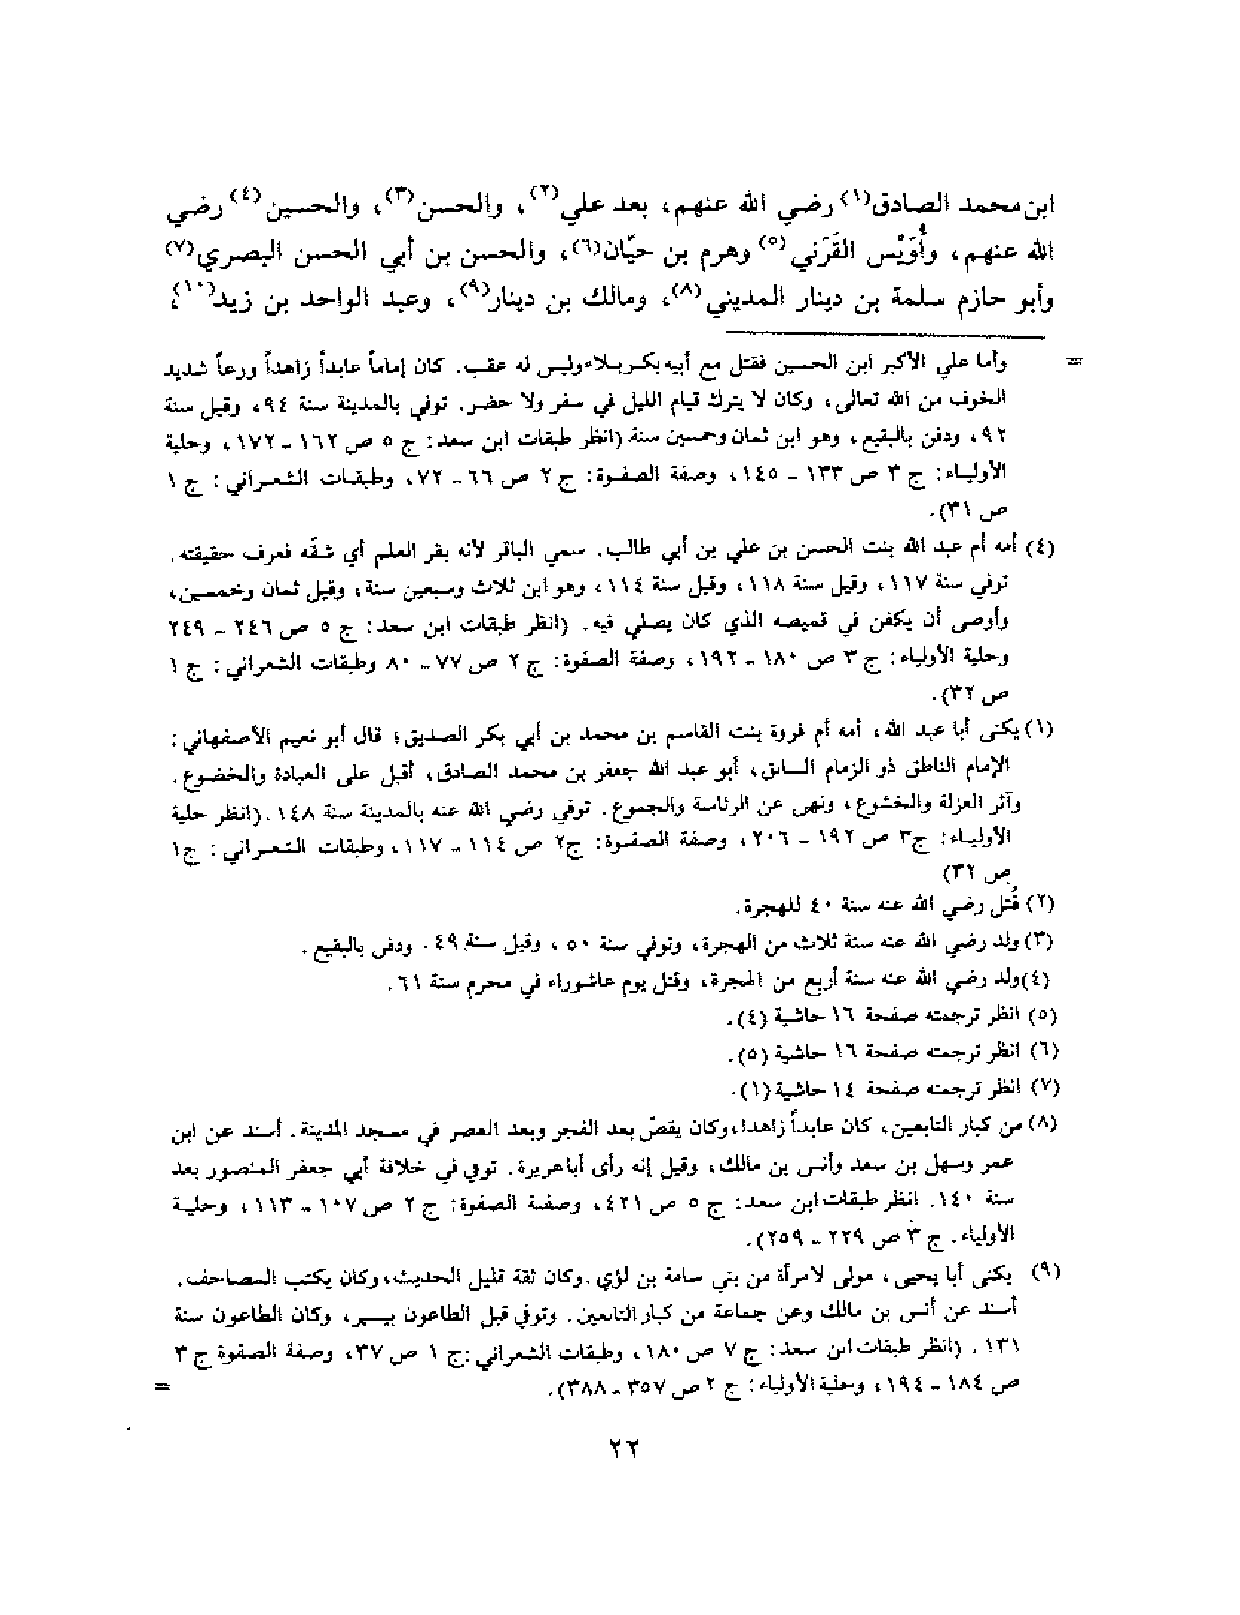 ابن محمد الصادق(١) رضي الله عنهم، بعد علي(٢)، والحسن(٣)، والحسين(٤) رضي
الله عنهم، وأُوَيْس القَرَني(٥) وهرم بن حيّان(٦)، والحسن بن أبي الحسن البصري(٧)
وأبو حازم سلمة بن دينار المديني(٨)، ومالك بن دينار(٩)، وعبد الواحد بن زيد(١٠)؛
= وأما علي الأكبر ابن الحسين فقتل مع أبيه بكربلاء وليس له عقب. كان إماماً عابداً زاهداً ورعاً شديد
الخوف من الله تعالى، وكان لا يترك قيام الليل في سفر ولا حضر. توفي بالمدينة سنة ٩٤، وقيل سنة
٩٢، ودفن بالبقيع، وهو ابن ثمان وخمسين سنة. (انظر طبقات ابن سعد: ج ٥ ص ١٦٢ - ١٧٢، وحلية
الأولياء: ج ٣ ص ١٣٣ - ١٤٥، وصفة الصفوة: ج ٢ ص ٦٦ - ٧٢، وطبقات الشعراني: ج ١
ص ٣١).
(٤) أمه أم عبد الله بنت الحسن بن علي بن أبي طالب. سمي الباقر لأنه بقر العلم أي شقّه فعرف حقيقته.
توفي سنة ١١٧، وقيل سنة ١١٨، وقيل سنة ١١٤، وهو ابن ثلاث وسبعين سنة، وقيل ثمان وخمسين،
وأوصى أن يكفن في قميصه الذي كان يصلي فيه. (انظر طبقات ابن سعد: ج ٥ ص ٢٤٦ - ٢٤٩
وحلية الأولياء: ج ٣ ص ١٨٠ - ١٩٢، وصفة الصفوة: ج ٢ ص ٧٧ - ٨٠ وطبقات الشعراني: ج ١
ص ٣٢).
(١) يكنى أبا عبد الله، أمه أم فروة بنت القاسم بن محمد بن أبي بكر الصديق؛ قال أبو نعيم الأصفهاني:
الإمام الناطق ذو الزمام السابق، أبو عبد الله جعفر بن محمد الصادق، أقبل على العبادة والخضوع.
وآثر العزلة والخشوع، ونهى عن الرئاسة والجموع. توفي رضي الله عنه بالمدينة سنة ١٤٨. (انظر حلية
الأولياء: ج٣ ص ١٩٢ - ٢٠٦، وصفة الصفوة: ج٢ ص ١١٤ - ١١٧، وطبقات الشعراني: ج١
ص ٣٢)
(٢) قُتل رضي الله عنه سنة ٤٠ للهجرة.
(٣) ولد رضي الله عنه سنة ثلاث من الهجرة، وتوفي سنة ٥٠، وقيل سنة ٤٩. ودفن بالبقيع.
(٤) ولد رضي الله عنه سنة أربع من الهجرة، وقتل يوم عاشوراء في محرم سنة ٦١.
(٥) انظر ترجمته صفحة ١٦ حاشية (٤).
(٦) انظر ترجمته صفحة ١٦ حاشية (٥).
(٧) انظر ترجمته صفحة ١٤ حاشية (١).
(٨) من كبار التابعين، كان عابداً زاهدا، وكان يقصّ بعد الفجر وبعد العصر في مسجد المدينة. أسند عن ابن
عمر وسهل بن سعد وأنس بن مالك، وقيل إنه رأى أبا هريرة. توفي في خلافة أبي جعفر المنصور بعد
سنة ١٤٠. انظر طبقات ابن سعد: ج ٥ ص ٤٢١، وصفة الصفوة: ج ٢ ص ١٠٧ - ١١٣، وحلية
الأولياء. ج ٣ ص ٢٢٩ - ٢٥٩).
(٩) يكنى أبا يحيى، مولى لامرأة من بني سامة بن لؤي. وكان ثقة قليل الحديث، وكان يكتب المصاحف.
أسند عن أنس بن مالك وعن جماعة من كبار التابعين. وتوفي قبل الطاعون بيسير، وكان الطاعون سنة
١٣١. (انظر طبقات ابن سعد: ج ٧ ص ١٨٠، وطبقات الشعراني: ج ١ ص ٣٧، وصفة الصفوة ج ٣
ص ١٨٤ - ١٩٤، وحلية الأولياء: ج ٢ ص ٣٥٧ - ٣٨٨). =
٢٢